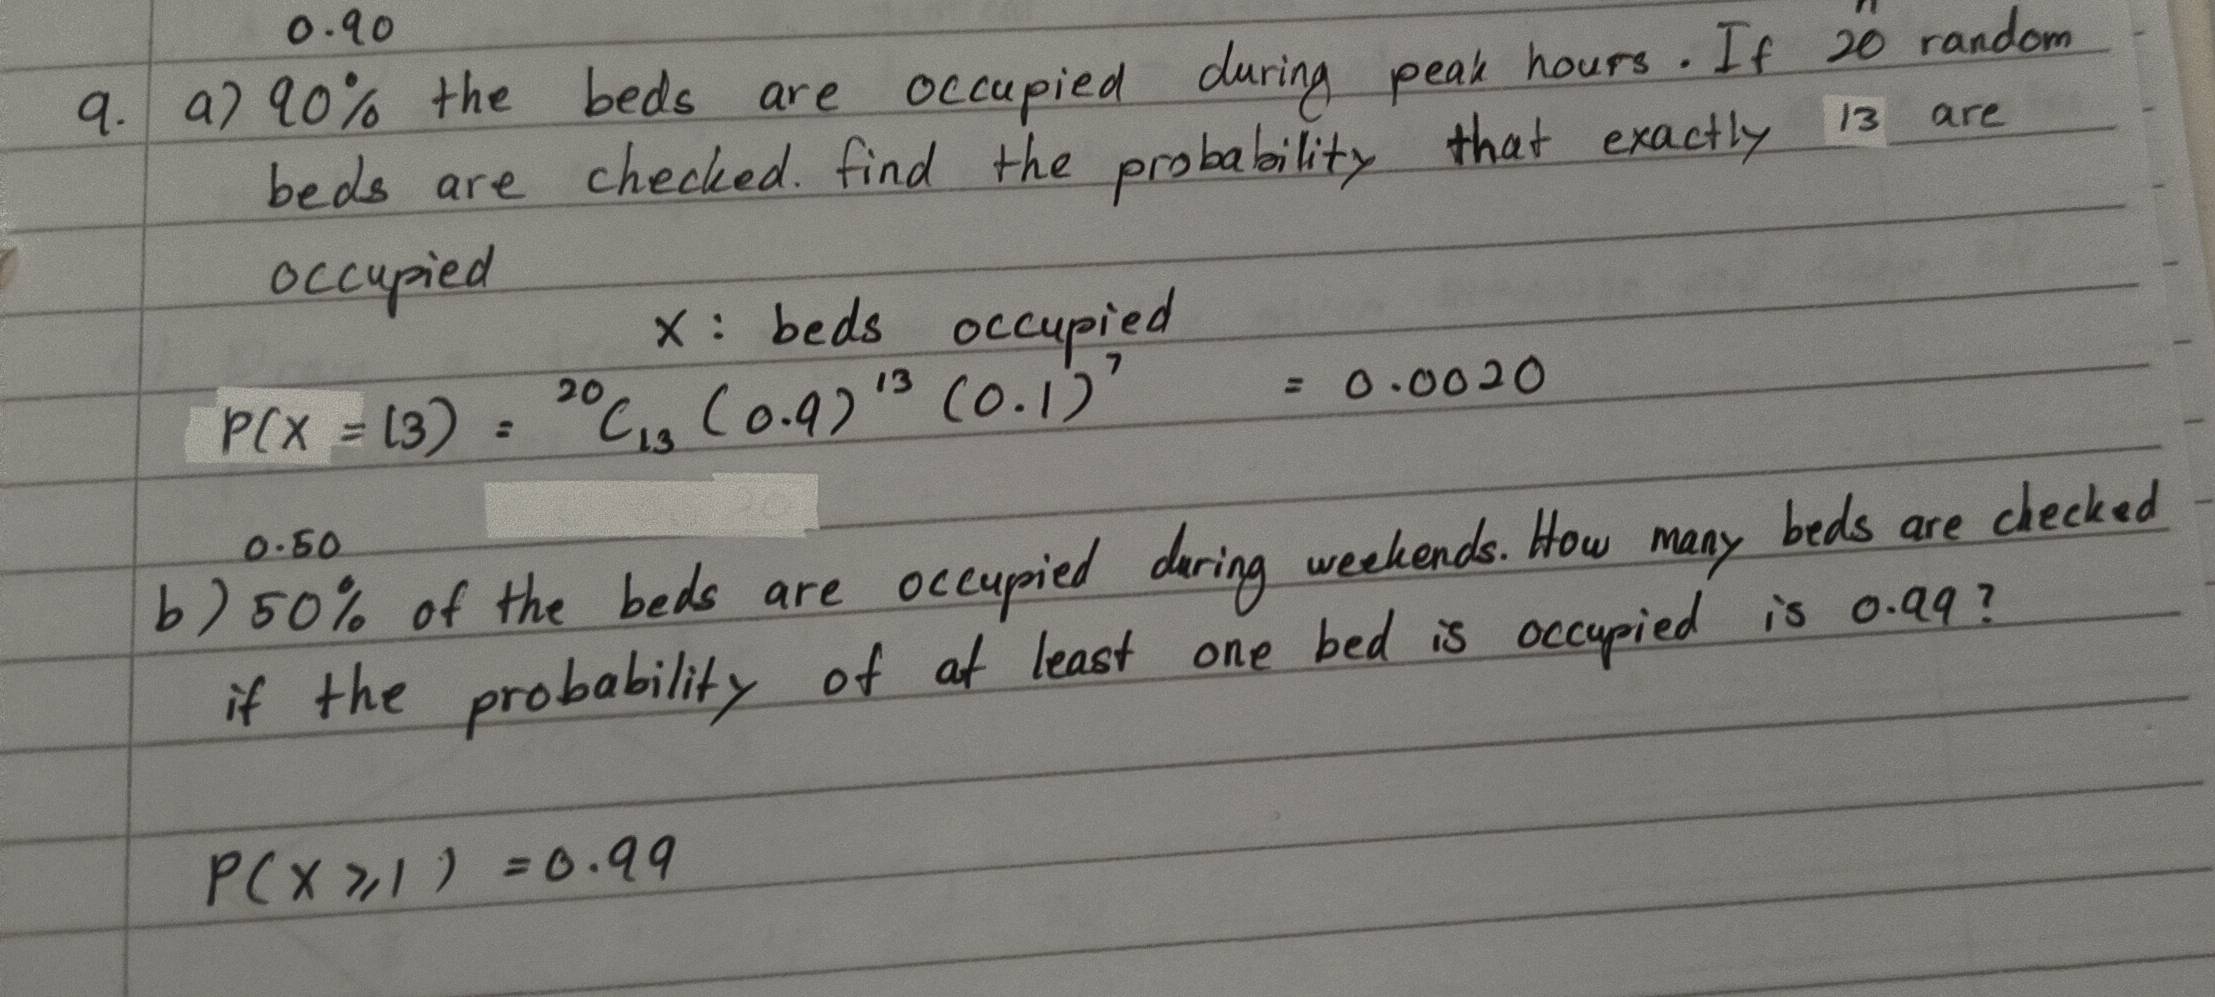 0.90
n
9. a) 90% the beds are occupied during peak hours. If 20 random
beds are checked. find the probability that exactly 13 are
occupied
X: beds occupied
P(X = 13) = ²⁰C₁₃ (0.9)¹³ (0.1)⁷ = 0.0020
0.50
b) 50% of the beds are occupied during weekends. How many beds are checked
if the probability of at least one bed is occupied is 0.99?
P(X ⩾ 1) = 0.99